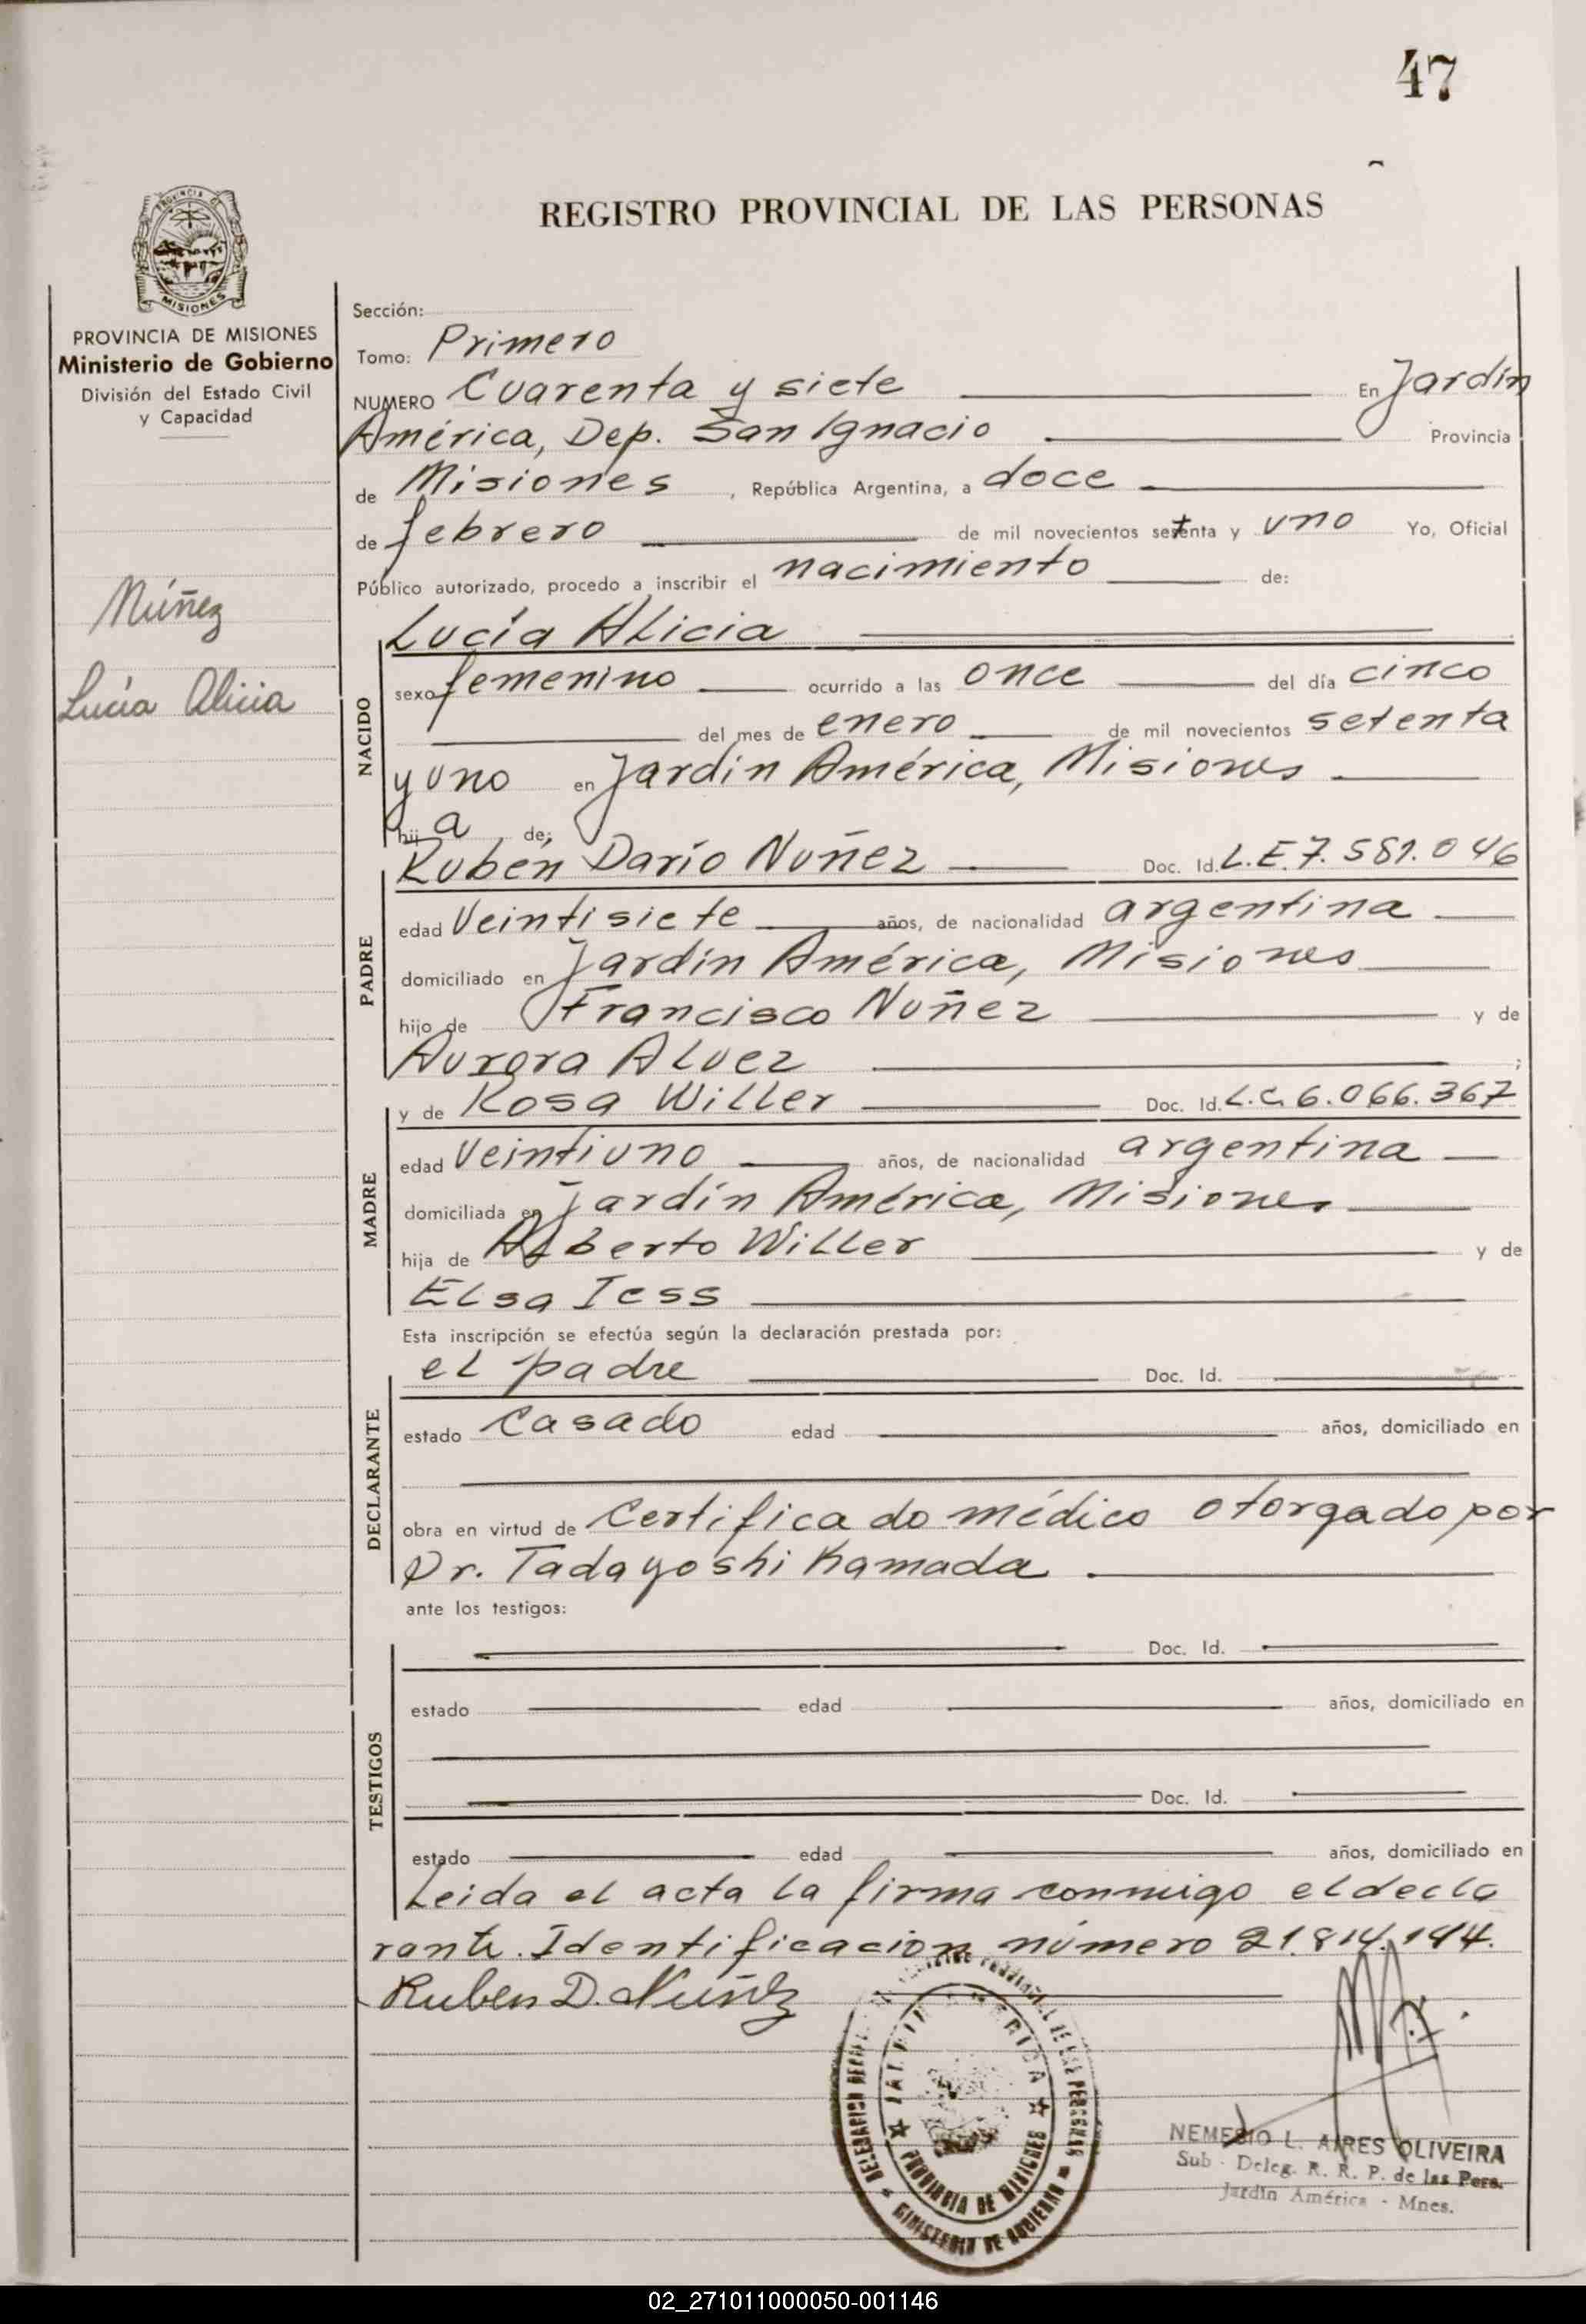 47
REGISTRO PROVINCIAL DE LAS PERSONAS
PROVINCIA DE MISIONES
Ministerio de Gobierno
División del Estado Civil
y Capacidad
Núñez
Lucía Alicia
Sección:
Tomo: Primero
NUMERO Cuarenta y siete En Jardín
América, Dep. San Ignacio Provincia
de Misiones, República Argentina, a doce
de febrero de mil novecientos setenta y uno Yo, Oficial
Público autorizado, procedo a inscribir el nacimiento de:
Lucía Alicia
NACIDO
sexo femenino ocurrido a las once del día cinco
del mes de enero de mil novecientos setenta
y uno en Jardín América, Misiones
hij a de;
Rubén Darío Nuñez Doc. Id. L.E.7.581.046
PADRE
edad Veintisiete años, de nacionalidad argentina
domiciliado en Jardín América, Misiones
hijo de Francisco Nuñez y de
Aurora Alvez ;
y de Rosa Willer Doc. Id. L.C. 6.066.367
MADRE
edad Veintiuno años, de nacionalidad argentina
domiciliada en Jardín América, Misiones
hija de Alberto Willer y de
Elsa Iess
Esta inscripción se efectúa según la declaración prestada por:
el padre Doc. Id.
DECLARANTE
estado Casado edad años, domiciliado en
obra en virtud de Certificado médico otorgado por
Dr. Tadayoshi Kamada
ante los testigos:
TESTIGOS
Doc. Id.
estado edad años, domiciliado en
Doc. Id.
estado edad años, domiciliado en
Leida el acta la firma conmigo el decla
rante. Identificación número 21.814.194.
Ruben D. Núñez
PROVINCIA DE MISIONES
MINISTERIO DE GOBIERNO
NEMESIO L. AIRES OLIVEIRA
Sub - Deleg. R. R. P. de las Pers.
Jardín América - Mnes.
02_271011000050-001146